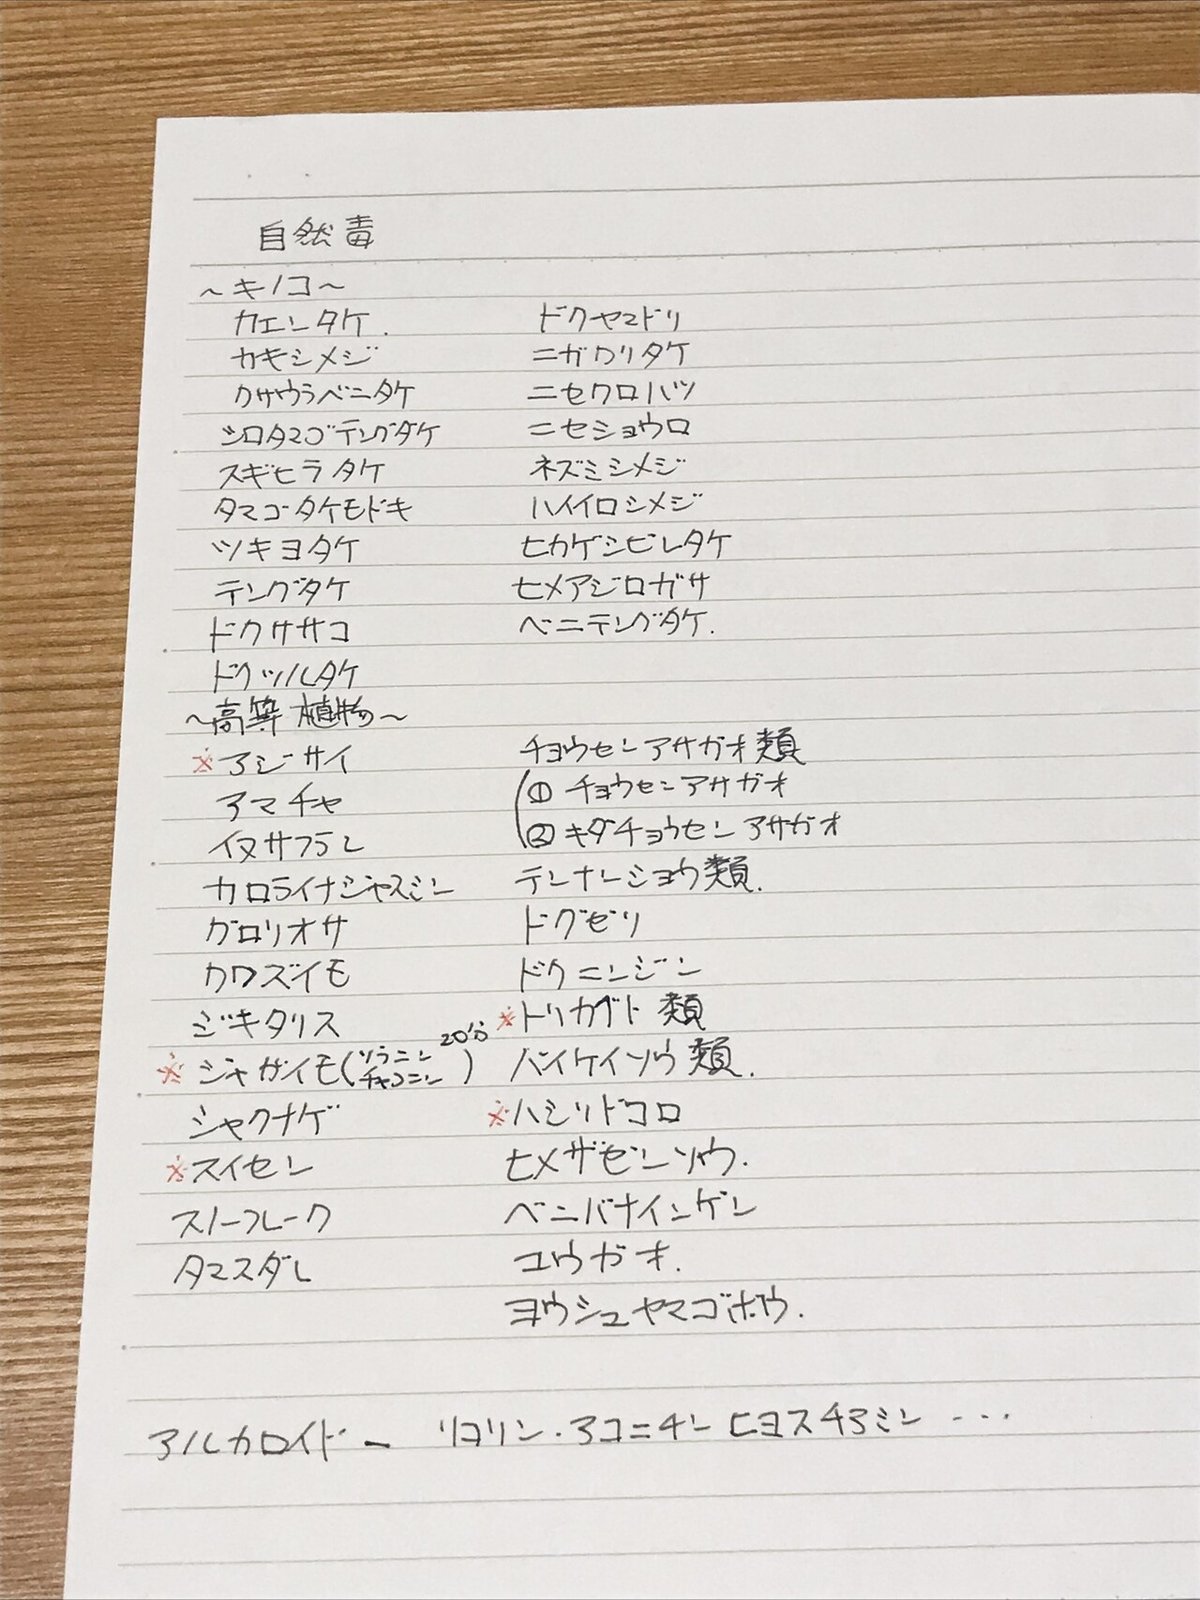 自然毒
~キノコ~
カエンタケ.
カキシメジ
クサウラベニタケ
シロタマゴテングダケ
スギヒラタケ
タマゴタケモドキ
ツキヨタケ
テングタケ
ドクササコ
ドクツルタケ
ドクヤマドリ
ニガクリタケ
ニセクロハツ
ニセショウロ
ネズミシメジ
ハイイロシメジ
ヒカゲシビレタケ
ヒメアジロガサ
ベニテングタケ.
~高等植物~
※アジサイ
アマチャ
イヌサフラン
カロライナジャスミン
グロリオサ
クワズイモ
ジキタリス
※ジャガイモ(ソラニン チャコニン) 20分
シャクナゲ
※スイセン
スノーフレーク
タマスダレ
チョウセンアサガオ類
① チョウセンアサガオ
② キダチョウセンアサガオ
テンナンショウ類.
ドクゼリ
ドクニンジン
※トリカブト類
バイケイソウ類.
※ハシリドコロ
ヒメザゼンソウ.
ベニバナインゲン
ユウガオ.
ヨウシュヤマゴボウ.
アルカロイド ー リコリン・アコニチン ヒヨスチアミン ...